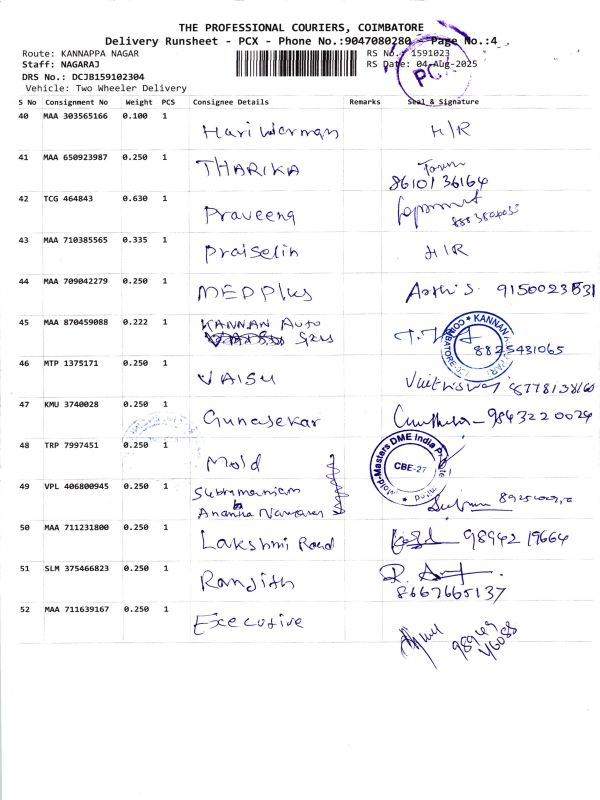 THE PROFESSIONAL COURIERS, COIMBATORE
Delivery Runsheet - PCX - Phone No.:9047080280 - Page No.:4
Route: KANNAPPA NAGAR
RS No.: 1591023
Staff: NAGARAJ
RS Date: 04-Aug-2025
PCX
DRS No.: DCJB159102304
Vehicle: Two Wheeler Delivery
S No Consignment No Weight PCS Consignee Details Remarks Seal & Signature
40 MAA 303565166 0.100 1 Hari Warman H/R
41 MAA 650923987 0.250 1 THARIKA
8610136164
42 TCG 464843 0.630 1 Praveena
43 MAA 710385565 0.335 1 Praiselin H/R
44 MAA 709042279 0.250 1 MEDPlus Aarthi S. 9150023831
45 MAA 870459088 0.222 1 KANNAN Auto
KANNAN
COIMBATORE
8825431065
46 MTP 1375171 0.250 1 VAISU
47 KMU 3740028 0.250 1 Gunasekar 9843220024
48 TRP 7997451 0.250 1 Mold
Mold-Masters DME India Private Limited
CBE-27
49 VPL 406800945 0.250 1 Subramaniam
50 MAA 711231800 0.250 1 Lakshmi Road 9894219664
51 SLM 375466823 0.250 1 Ranjith
8667665137
52 MAA 711639167 0.250 1 Executive